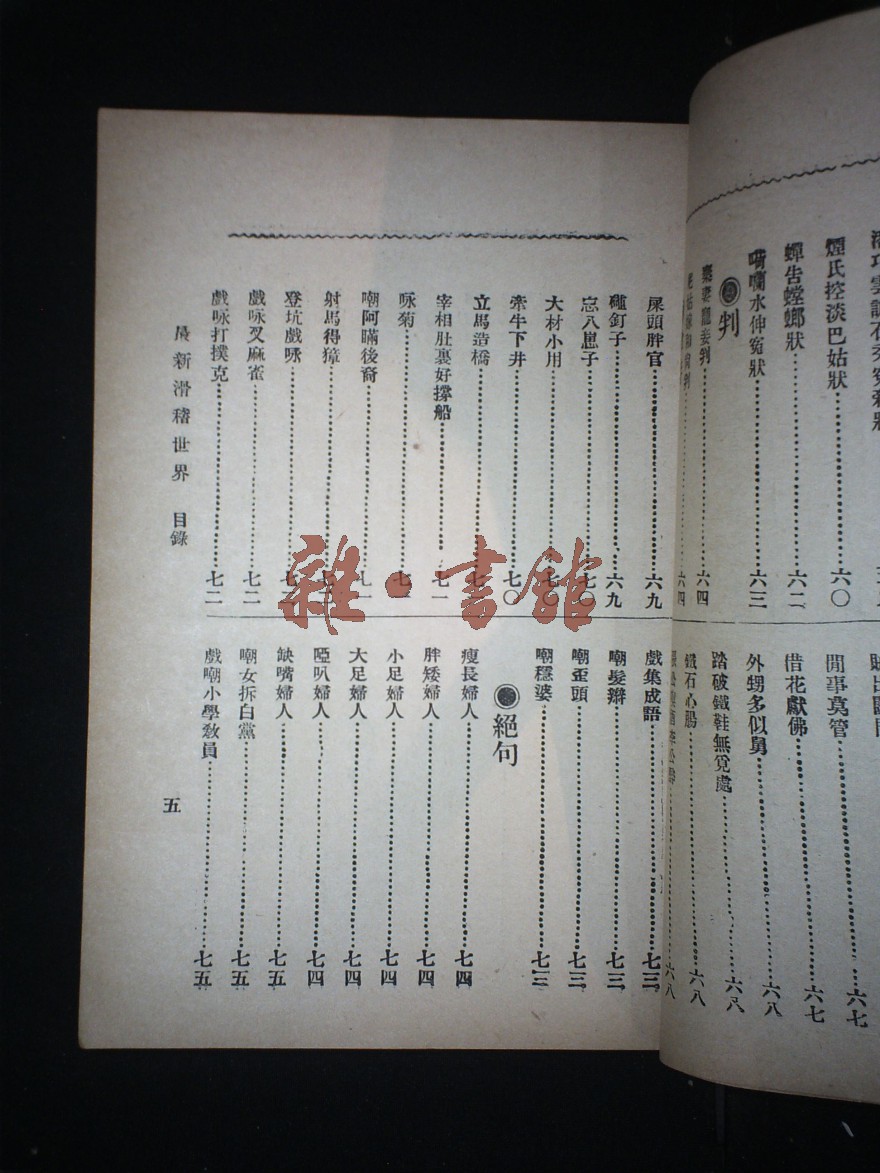 煙氏控淡巴姑狀……六〇
蟬告螳螂狀……六二
嗬囒水伸冤狀……六三
◉判
棄妻寵妾判……六四
六四
閒事莫管……六七
借花獻佛……六七
外甥多似舅……六八
踏破鐵鞋無覓處……六八
鐵石心腸……六八
六八
屎頭胖官……六九
碰釘子……六九
忘八崽子……七〇
大材小用……七〇
牽牛下井……七〇
立馬造橋……七
宰相肚裏好撐船……七一
咏菊……七
嘲阿瞞後裔……七一
射馬得獐……七
登坑戲咏……七
戲咏叉麻雀……七二
戲咏打撲克……七二
戲集成語……七三
嘲髮辮……七三
嘲歪頭……七三
嘲穩婆……七三
◉絕句
瘦長婦人……七四
胖矮婦人……七四
小足婦人……七四
大足婦人……七四
啞叭婦人……七四
缺嘴婦人……七五
嘲女拆白黨……七五
戲嘲小學教員……七五
最新滑稽世界 目錄
五
雜·書館